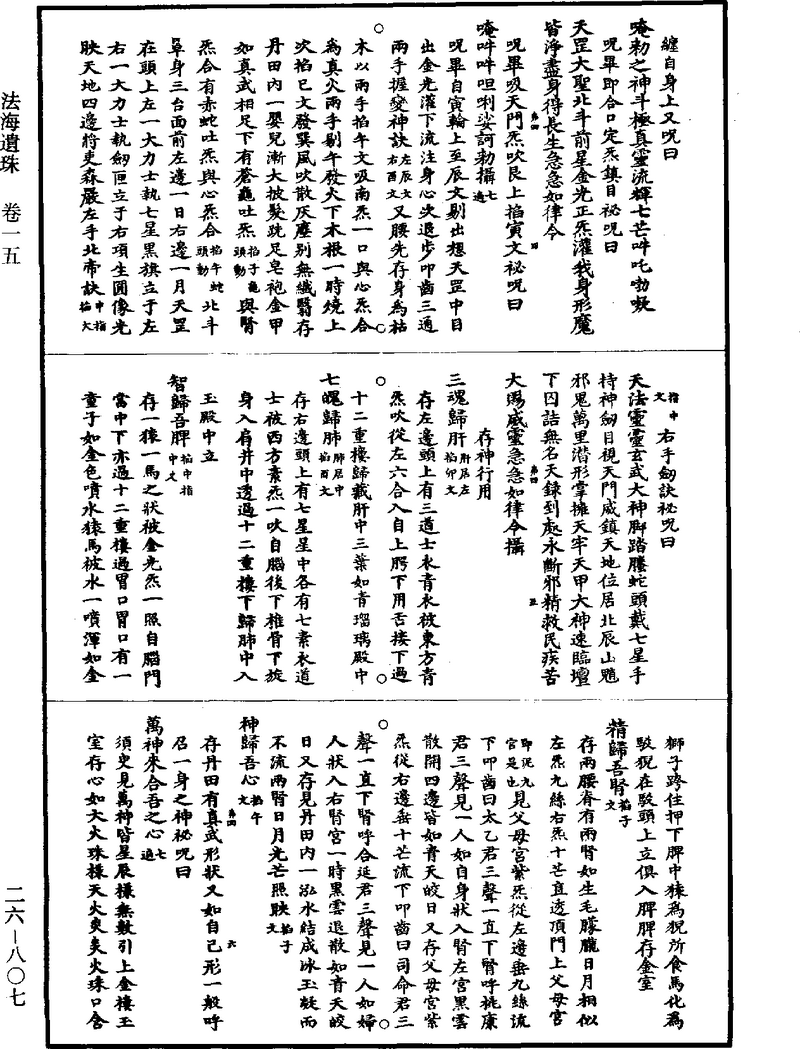 法海遺珠　卷一五
二六—八〇七
纏自身上又呪曰
唵勑之神斗極真靈流輝七芒吽吒勃
呪畢即合口定炁鎮目祕呪曰
天罡大聖北斗前星金光正炁灌我身形魔
皆淨盡身得長生急急如律令
呪畢吸天門炁吹艮上掐寅文祕呪曰
唵吽吽呾唎娑訶勑攝七遍
呪畢自寅輪上至辰文剔出想天罡中目
出金光灌下流注身心次退步叩齒三通
兩手握變神訣左辰文右酉文又腰先存身為枯
木以兩手掐午文吸南炁一口與心炁合
為真火兩手剔午發火下木根一時燒上
次掐巳文發巽風吹散灰塵別無纖翳存
丹田內一嬰兒漸大披髮跣足皂袍金甲
如真武相足下有蒼龜吐炁掐子龜頭動與腎
炁合有赤蛇吐炁與心炁合掐午蛇頭動北斗
罩身三台面前左邊一日右邊一月天罡
在頭上左一大力士執七星黑旗立于左
右一大力士執劒匣立于右項生圓像光
映天地四邊將吏森嚴左手北帝訣中指掐大
指中文右手劒訣祕呪曰
天法靈靈玄武大神脚踏螣蛇頭戴七星手
持神劒目視天門威鎮天地位居北辰山魈
邪鬼萬里潛形掌擁天牢天甲大神速臨壇
下因詰無名天籙到處永斷邪精救民疾苦
大賜威靈急急如律令攝
存神行用
三魂歸肝肝居左掐卯文
存左邊頭上有三道士衣青衣被東方青
炁吹從左六合入自上腭下用舌接下過
十二重樓歸藏肝中三葉如青瑠璃殿中
七魄歸肺肺居中掐酉文
存右邊頭上有七星星中各有七素衣道
士被西方素炁一吹自腦後下椎骨下旋
身入肩井中透過十二重樓下歸肺中入
玉殿中立
智歸吾脾掐中指中文
存一猿一馬之狀被金光炁一照自腦門
當中下亦過十二重樓過胃口胃口有一
童子如金色噴水猿馬被水一噴渾如金
獅子跨住押下脾中猿為猊所食馬化為
駮猊在駮頭上立俱入脾脾存金室
精歸吾腎掐子文
存兩腰脊有兩腎如生毛朦朧日月相似
左炁九絲右炁十芒直透頂門上父母宮
即泥九宮是也見父母宮紫炁從左邊垂九絲流
下叩齒曰太乙君三聲一直下腎呼桃康
君三聲見一人如自身狀入腎左宮黑雲
散開四邊皆如青天皎日又存父母宮紫
炁從右邊垂十芒流下叩齒曰司命君三
聲一直下腎呼合延君三聲見一人如婦
人狀入右腎宮一時黑雲退散如青天皎
日又存見丹田內一泓水結成冰玉凝而
不流兩腎日月光芒照映掐子文
神歸吾心掐午文
存丹田有真武形狀又如自己形一般呼
召一身之神祕呪曰
萬神來合吾之心七遍
須臾見萬神皆星辰樣無數引上金樓玉
室存心如大火珠樣天火炎炎火珠口含